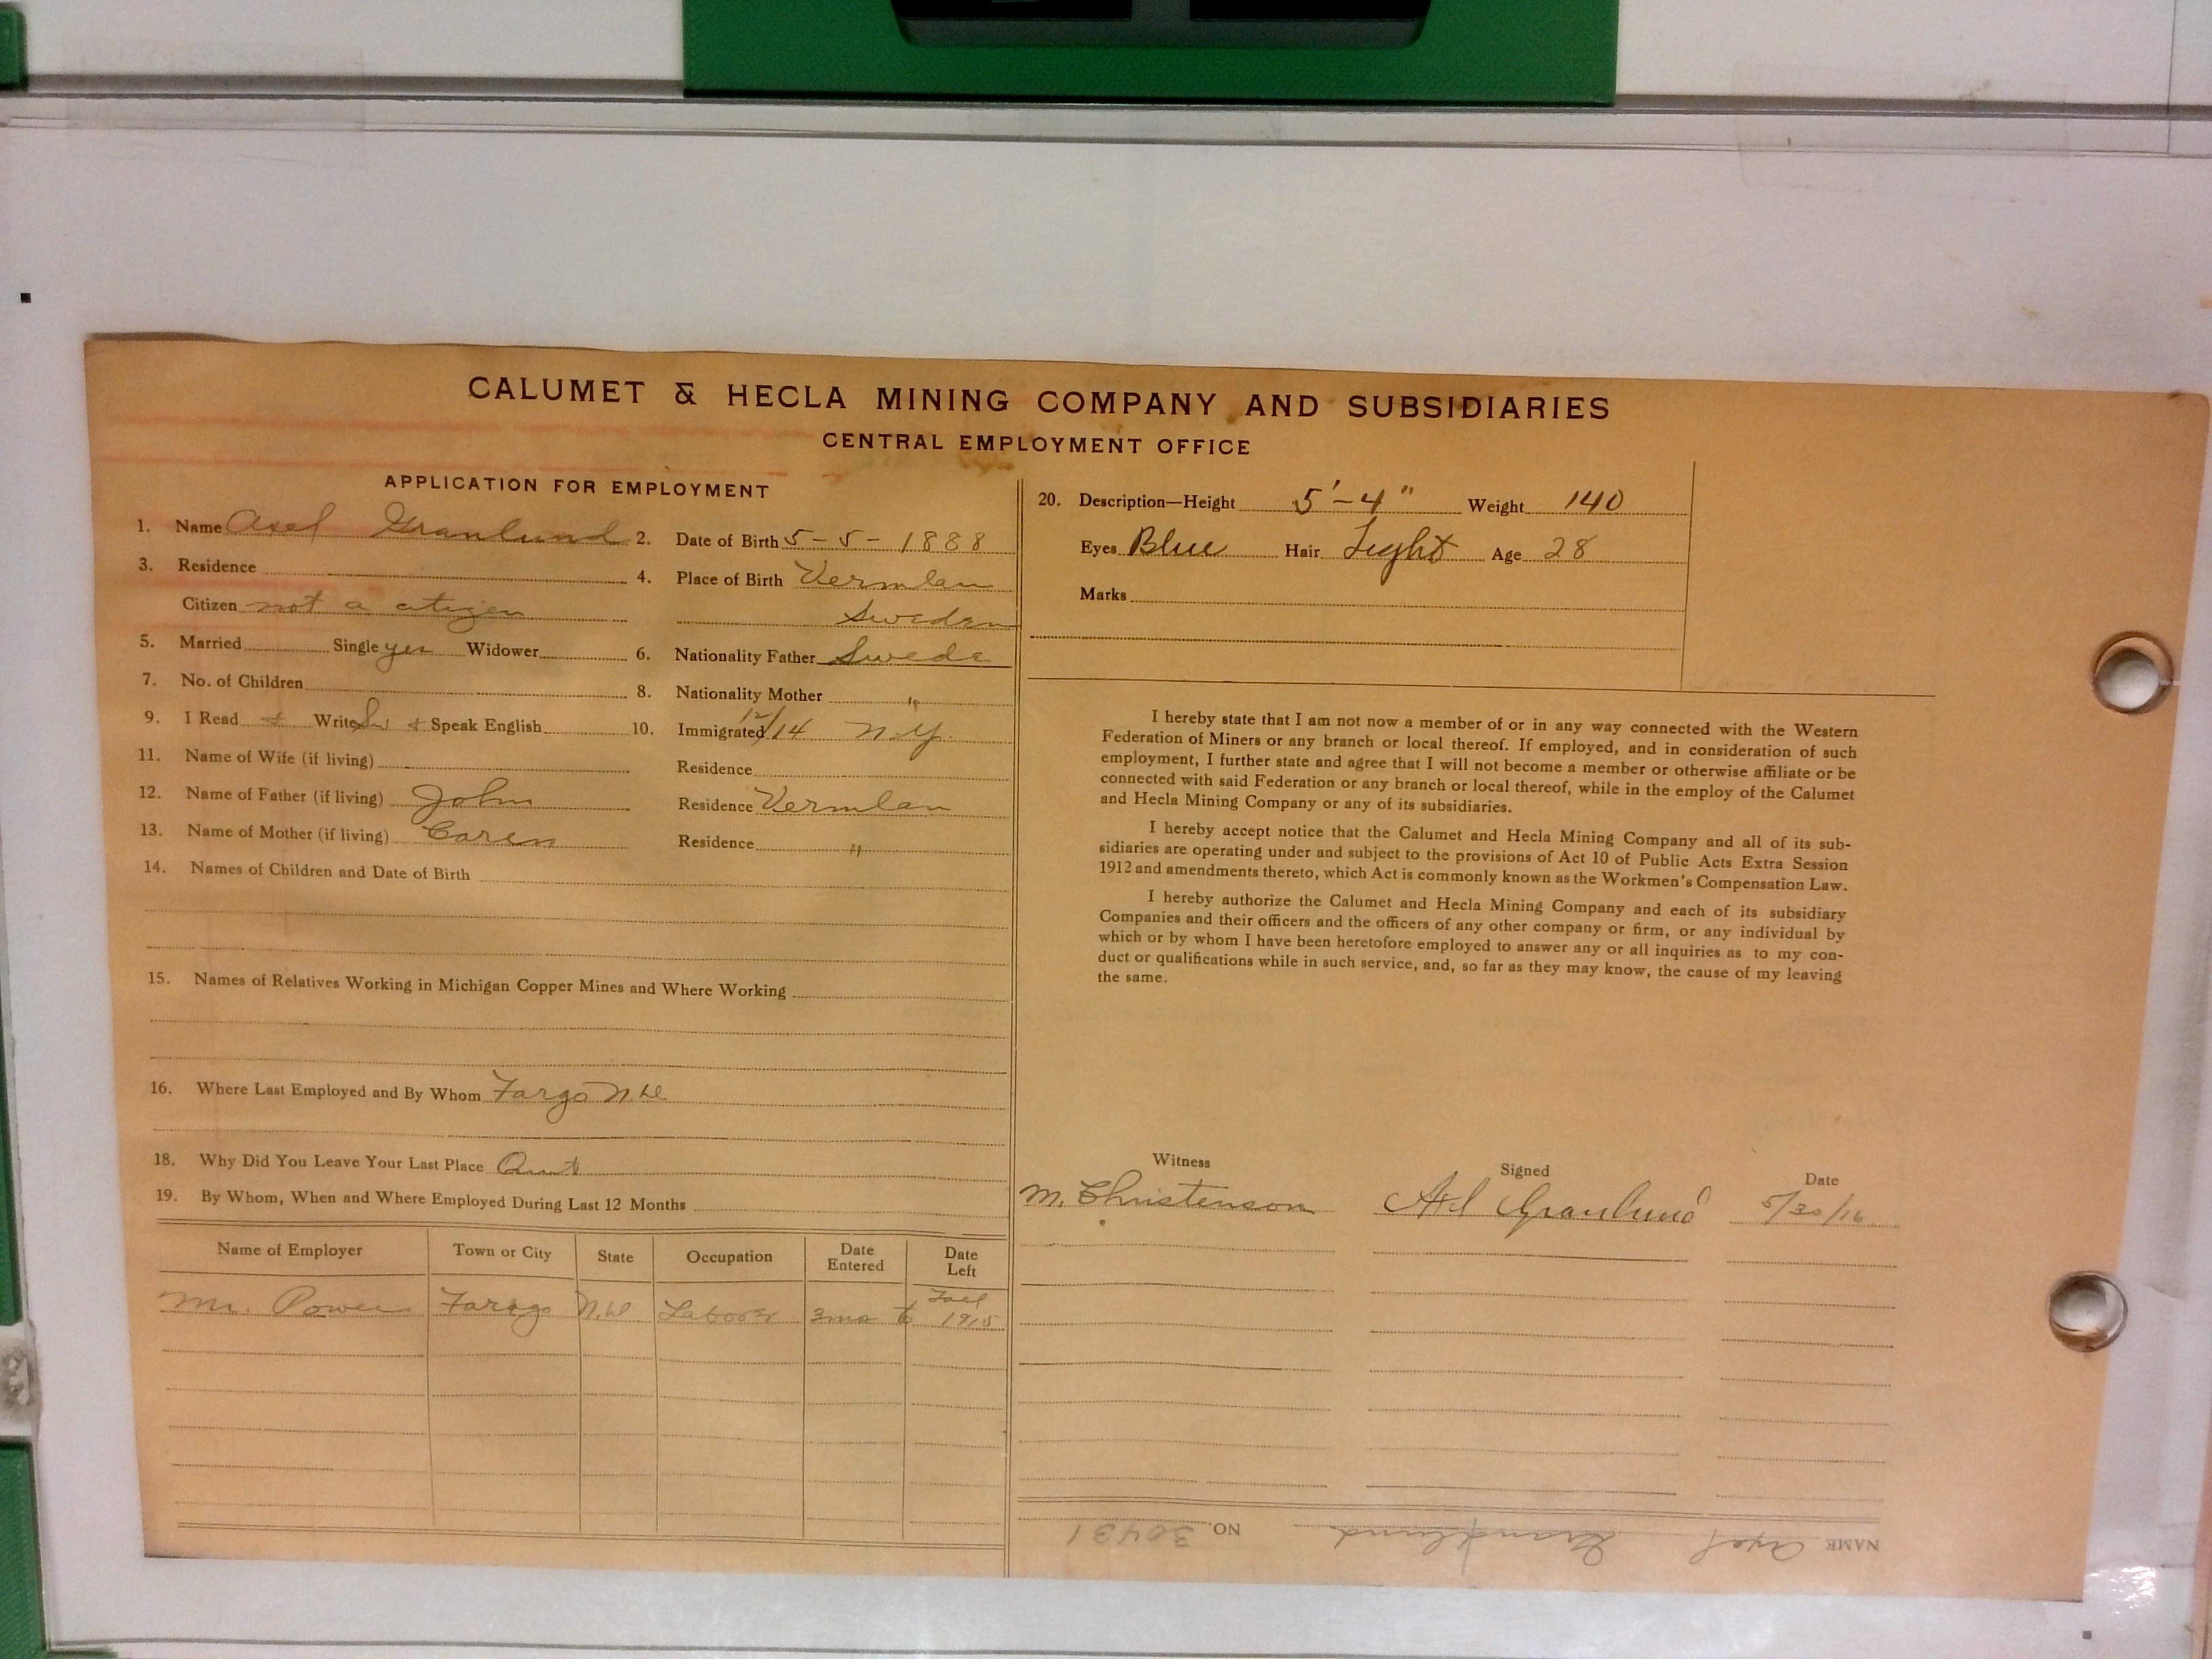 CALUMET & HECLA MINING COMPANY AND SUBSIDIARIES
CENTRAL EMPLOYMENT OFFICE
APPLICATION FOR EMPLOYMENT
1. Name Axel Granlund 2. Date of Birth 5-5-1888
3. Residence 4. Place of Birth Vermlan
Citizen not a citizen Sweden
5. Married Single yes Widower 6. Nationality Father Swede
7. No. of Children 8. Nationality Mother "
9. I Read + Write Sw + Speak English 10. Immigrated 12/14 N.Y.
11. Name of Wife (if living) Residence
12. Name of Father (if living) John Residence Vermlan
13. Name of Mother (if living) Caren Residence "
14. Names of Children and Date of Birth
15. Names of Relatives Working in Michigan Copper Mines and Where Working
16. Where Last Employed and By Whom Fargo N.D.
18. Why Did You Leave Your Last Place Quit
19. By Whom, When and Where Employed During Last 12 Months
Name of Employer Town or City State Occupation Date Entered Date Left
Mr. Powers Farogo N.D. Laborer 3 mo to 1915
20. Description—Height 5'-4" Weight 140
Eyes Blue Hair Light Age 28
Marks
I hereby state that I am not now a member of or in any way connected with the Western
Federation of Miners or any branch or local thereof. If employed, and in consideration of such
employment, I further state and agree that I will not become a member or otherwise affiliate or be
connected with said Federation or any branch or local thereof, while in the employ of the Calumet
and Hecla Mining Company or any of its subsidiaries.
I hereby accept notice that the Calumet and Hecla Mining Company and all of its sub-
sidiaries are operating under and subject to the provisions of Act 10 of Public Acts Extra Session
1912 and amendments thereto, which Act is commonly known as the Workmen's Compensation Law.
I hereby authorize the Calumet and Hecla Mining Company and each of its subsidiary
Companies and their officers and the officers of any other company or firm, or any individual by
which or by whom I have been heretofore employed to answer any or all inquiries as to my con-
duct or qualifications while in such service, and, so far as they may know, the cause of my leaving
the same.
Witness Signed Date
M. Christenson Axel Granlund 5/30/16
NAME Axel Grandlund NO. 30431